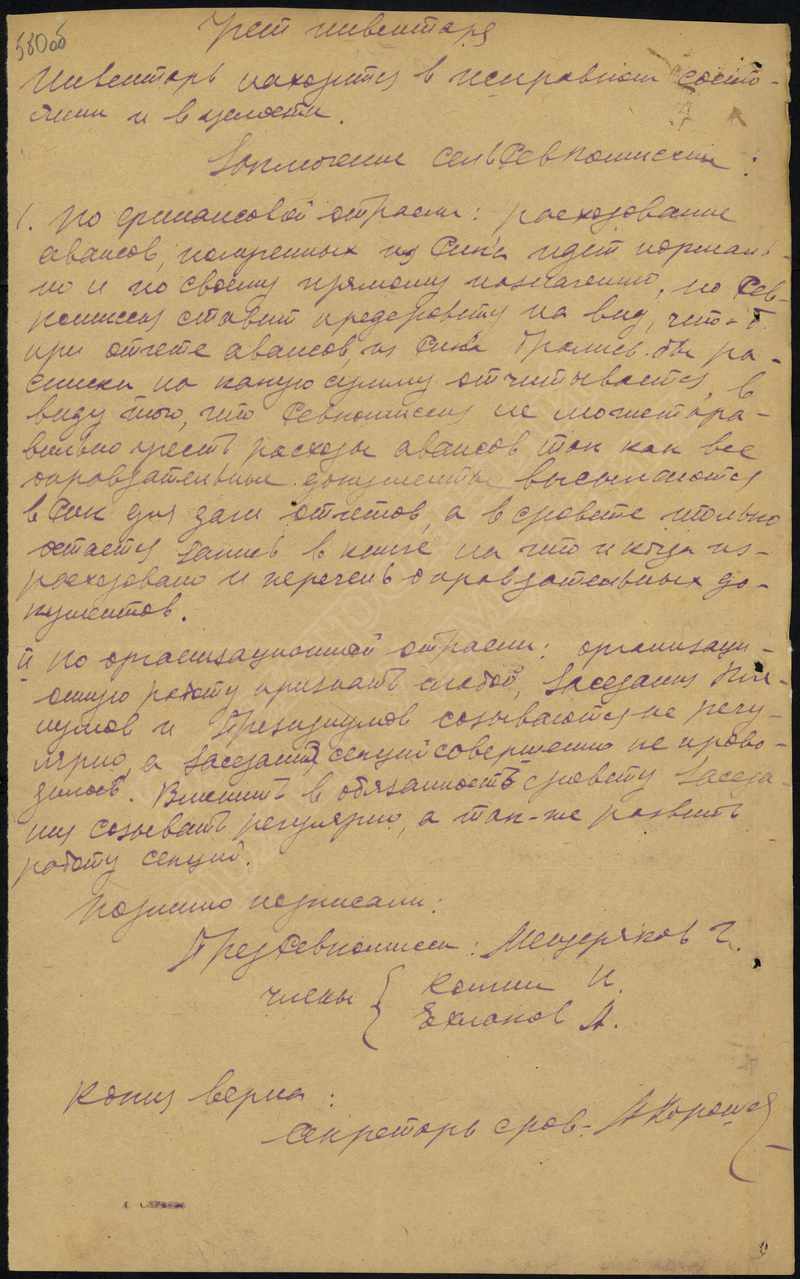 580об
Учет инвентаря
Инвентарь находится в исправном состо-
янии и в целости.
Заключение сельревкомиссии:
1. По финансовой отрасли: расходование
авансов, полученных из Рика идет нормаль-
но и по своему прямому назначению, но рев-
комиссия ставит предсровету на вид, чтоб
при отчете авансов из Рика брались бы ра-
списки на какую сумму отчитывается, в
виду того, что ревкомиссия не может пра-
вильно учесть расходы авансов так как все
оправдательные документы высылаются
в Рик для дачи отчетов, а в сровете только
остается запись в книге на что и когда из-
расходовано и перечень оправдательных до-
кументов.
II По организационной отрасли: организаци-
онную работу признать слабой, заседания Пле-
нумов и Президиумов созываются не регу-
лярно, а заседания секций совершенно не прово-
дилось. Вменить в обязанность сровету заседа-
ния созывать регулярно, а так-же развить
работу секций.
Подлинно подписали:
Предревкомиссии: Мещеряков Г.
члены И.
А.
Копия верна:
Секретарь сров.